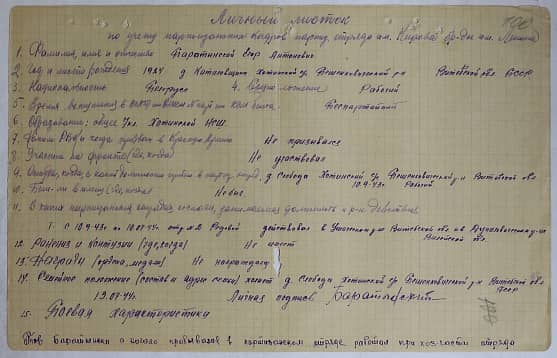 Личный листок
по учету партизанских кадров партиз. отряда им. Кирова бр-ды им. Ленина
1. Фамилия, имя и отчество Баратинский Егор Антонович
2. Год и место рождения 1924 д. Хотинский с/с Бешенковичский р-н Витебской обл. БССР
3. Национальность Белорус 4. Соцположение Рабочий
5. Время вступления в Беспартийный
6. Образование: общее 7кл. Хотинской НСШ.
7. и когда призван в Красную армию Не призывался
8. Участие на фронте (где, когда) Не участвовал
9. Откуда, когда, с какой прибыл в д. Слобода Хотинский с/с Бешенковичский р-н Витебской обл.
10.9.43г. Рабочий
10. Был-ли в плену (где, когда) Не был.
11. В каких партизанских отрядах состоял, занимаемая должность и р-н действия
С 10.9.43г. по 10.07.44г. Рядовой действовал в Ушачском р-не Витебской обл.
Витебской обл.
12. Ранения и контузии (где, когда) Не имеет
13. Награды (ордена, медали) Не награждался
14. Семейное положение (состав и адрес семьи) холост д. Слобода Хотинский с/с Бешенковичский р-н Витебской обл.
БССР
19.07.44г. Личная подпись
15. Боевая характеристика
Тов. в партизанском отряде работал при хоз-части отряда